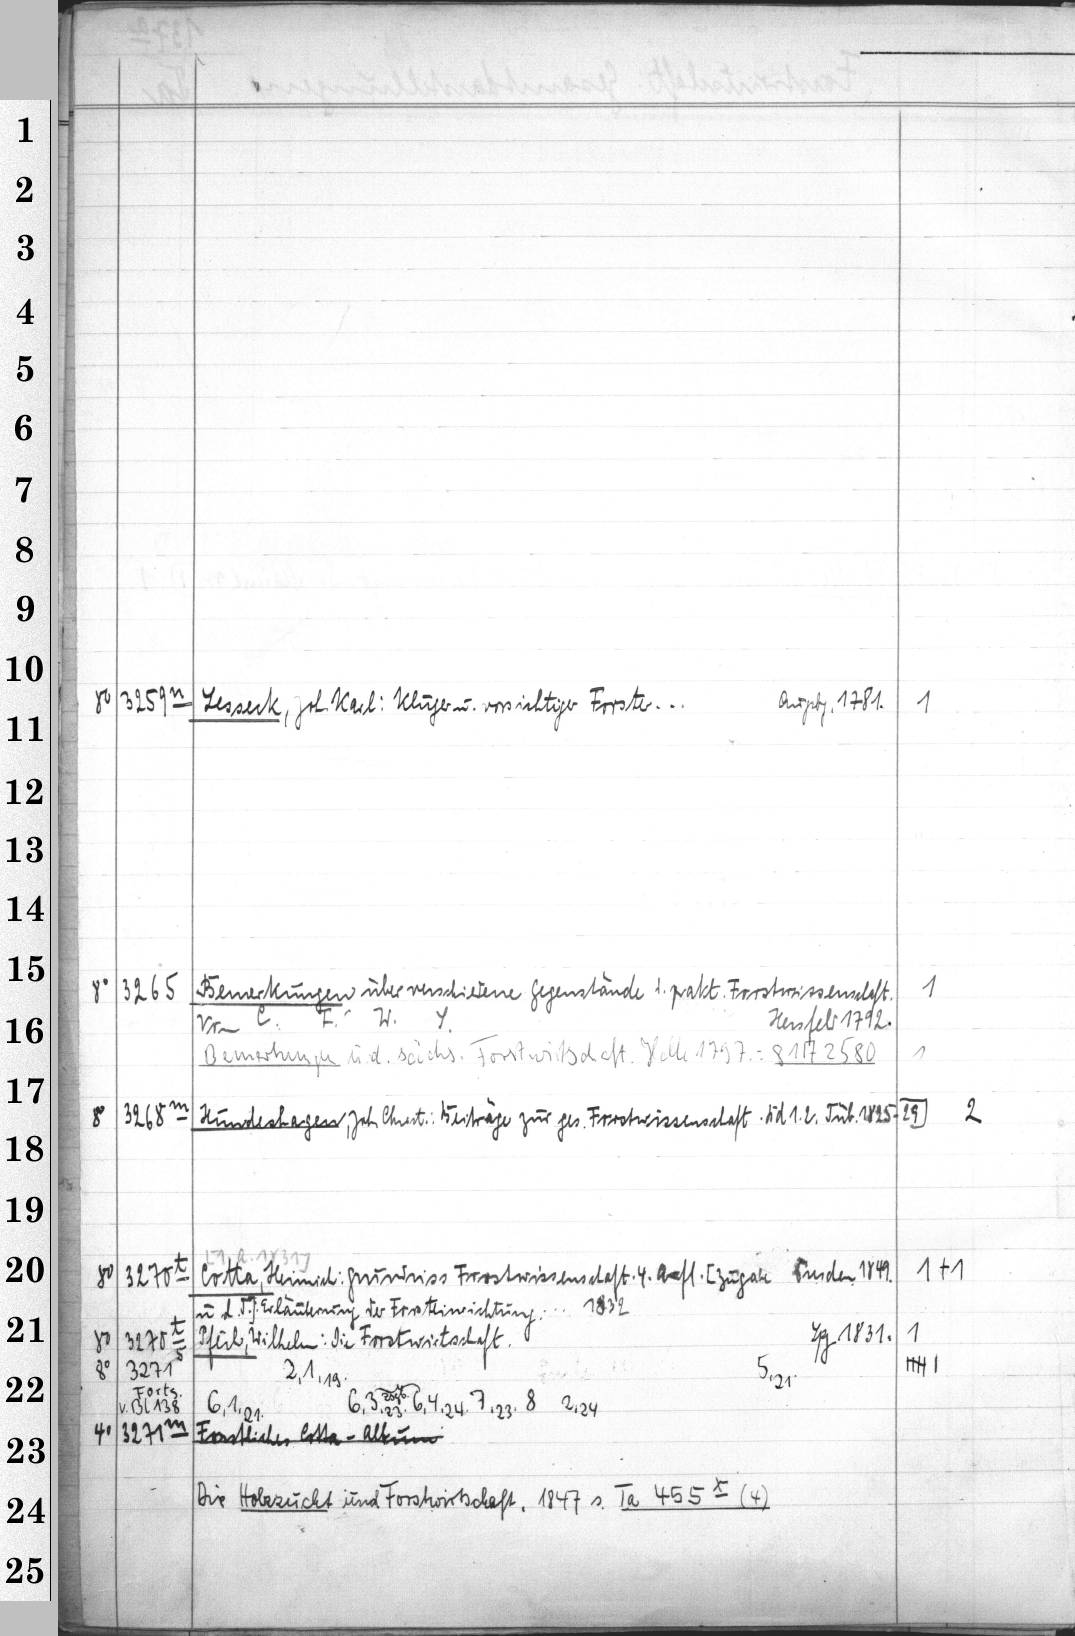 1
2
3
4
5
6
7
8
9
10
8° 3259n Lesseck, Joh. Karl: Kluger u. vorsichtiger Förster... Augsbg. 1781. 1
11
12
13
14
15
8° 3265 Bemerkungen über verschiedene Gegenstände d. prakt. Forstwissenschaft. 1
16
Von C. F. W. Y. Hersfeld 1792.
Bemerkungen ü. d. sächs. Forstwirtschaft. 1797. = 8 1172580 1
17
8° 3268m Hundeshagen, Joh. Christ.: Beiträge zur ges. Forstwissenschaft. Bd 1.2. Tüb. 1825-29] 2
18
19
[1. A. 1831]
20
8° 3270t Cotta, Heinrich: Grundriss d. Forstwissenschaft. 4. Aufl. [Zugabe Dresden 1849. 1+1
u. d. T.]: Erläuterung der Forsteinrichtung... 1832
21
8° 3270t Pfeil, Wilhelm: Die Forstwirtschaft. Lpg 1831. 1
8° 3271s 2,1,19. 5,21.
22
Forts. v. Bl 138 6,1,21. 6,3,23. 6,4,24. 7,23. 8 2,24
4° 3271m Forstliches Cotta-Album
23
Die Holzzucht und Forstwirtschaft. 1847 s. Ta 455x (4)
24
25